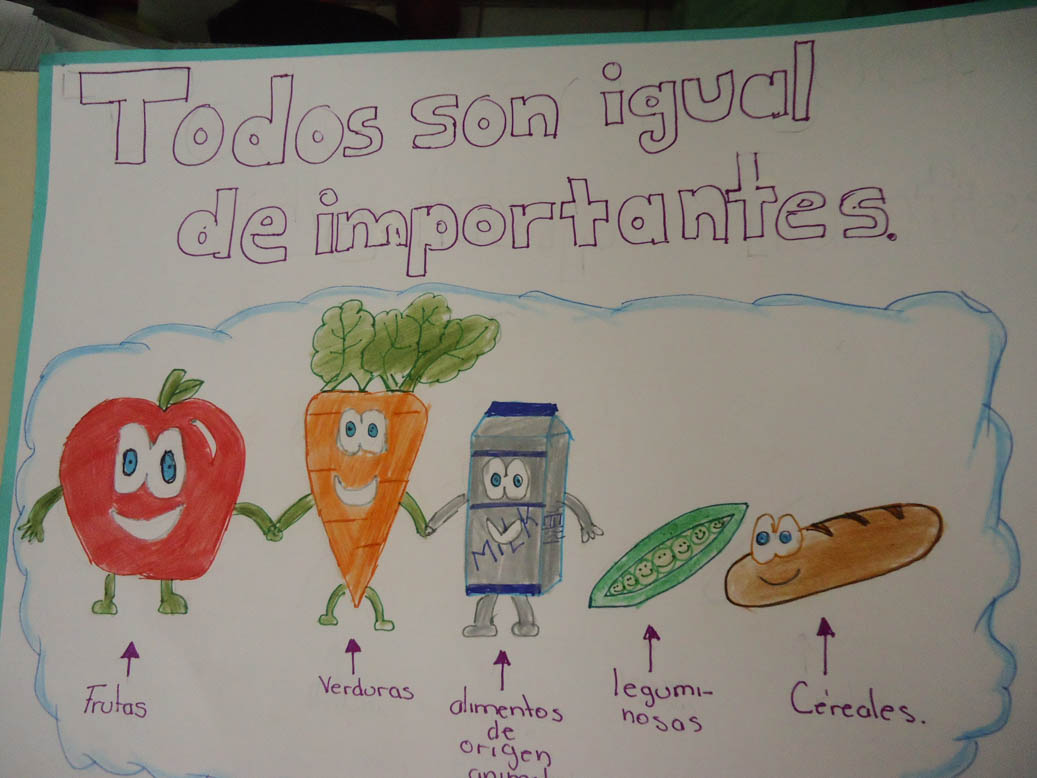 Todos son igual
de importantes.
MILK
Frutas
Verduras
alimentos
de
origen
animal
legumi-
nosas
Céreales.